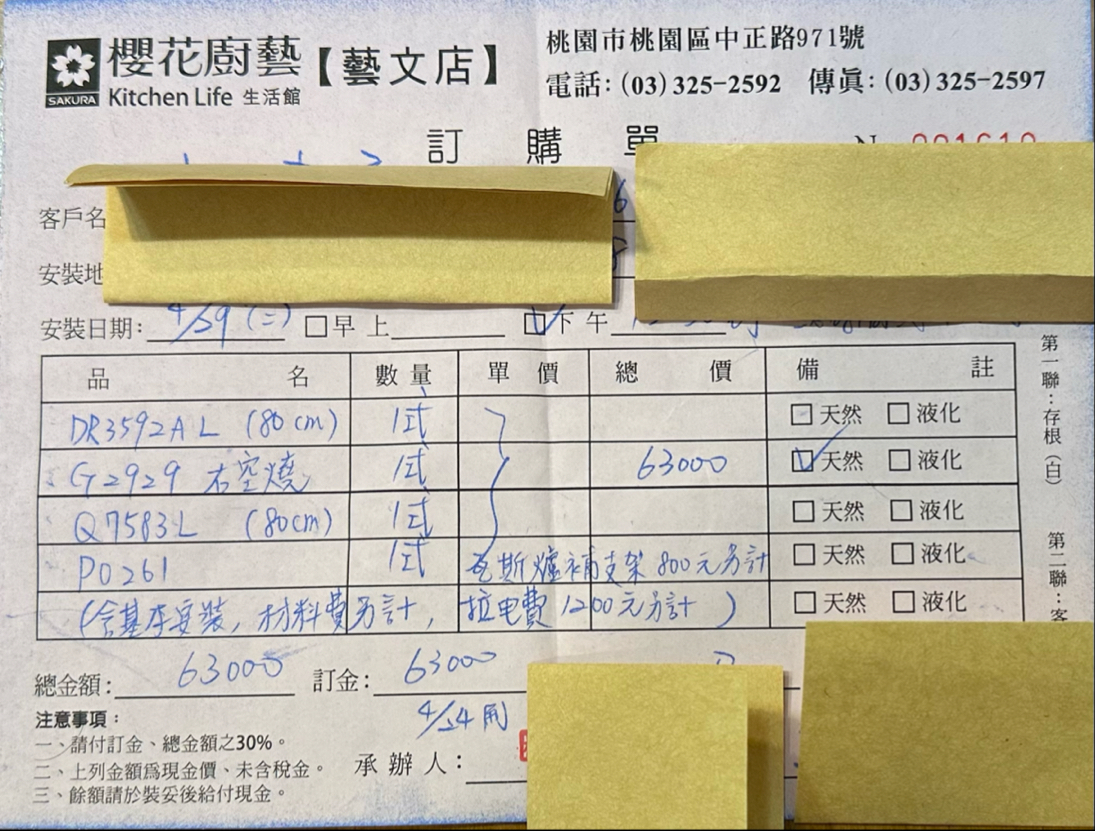 櫻花廚藝【藝文店】
SAKURA
Kitchen Life 生活館
桃園市桃園區中正路971號
電話:(03)325-2592 傳眞:(03)325-2597
訂購單
客戶名
安裝地
安裝日期: 4/29(二) □早上 ☑下午
品名 數量 單價 總價 備註
DR3592AL (80cm) 1式 □天然 □液化
G2929 右空燒 1式 63000 ☑天然 □液化
Q7583L (80cm) 1式 □天然 □液化
P0261 1式 瓦斯爐補支架800元另計 □天然 □液化
(含基本安裝,材料費另計,拉电費1200元另計) □天然 □液化
總金額: 63000 訂金: 63000
4/24 刷
注意事項:
一、請付訂金、總金額之30%。
二、上列金額爲現金價、未含稅金。
三、餘額請於裝妥後給付現金。
承辦人:
第一聯:存根(白)
第二聯:客